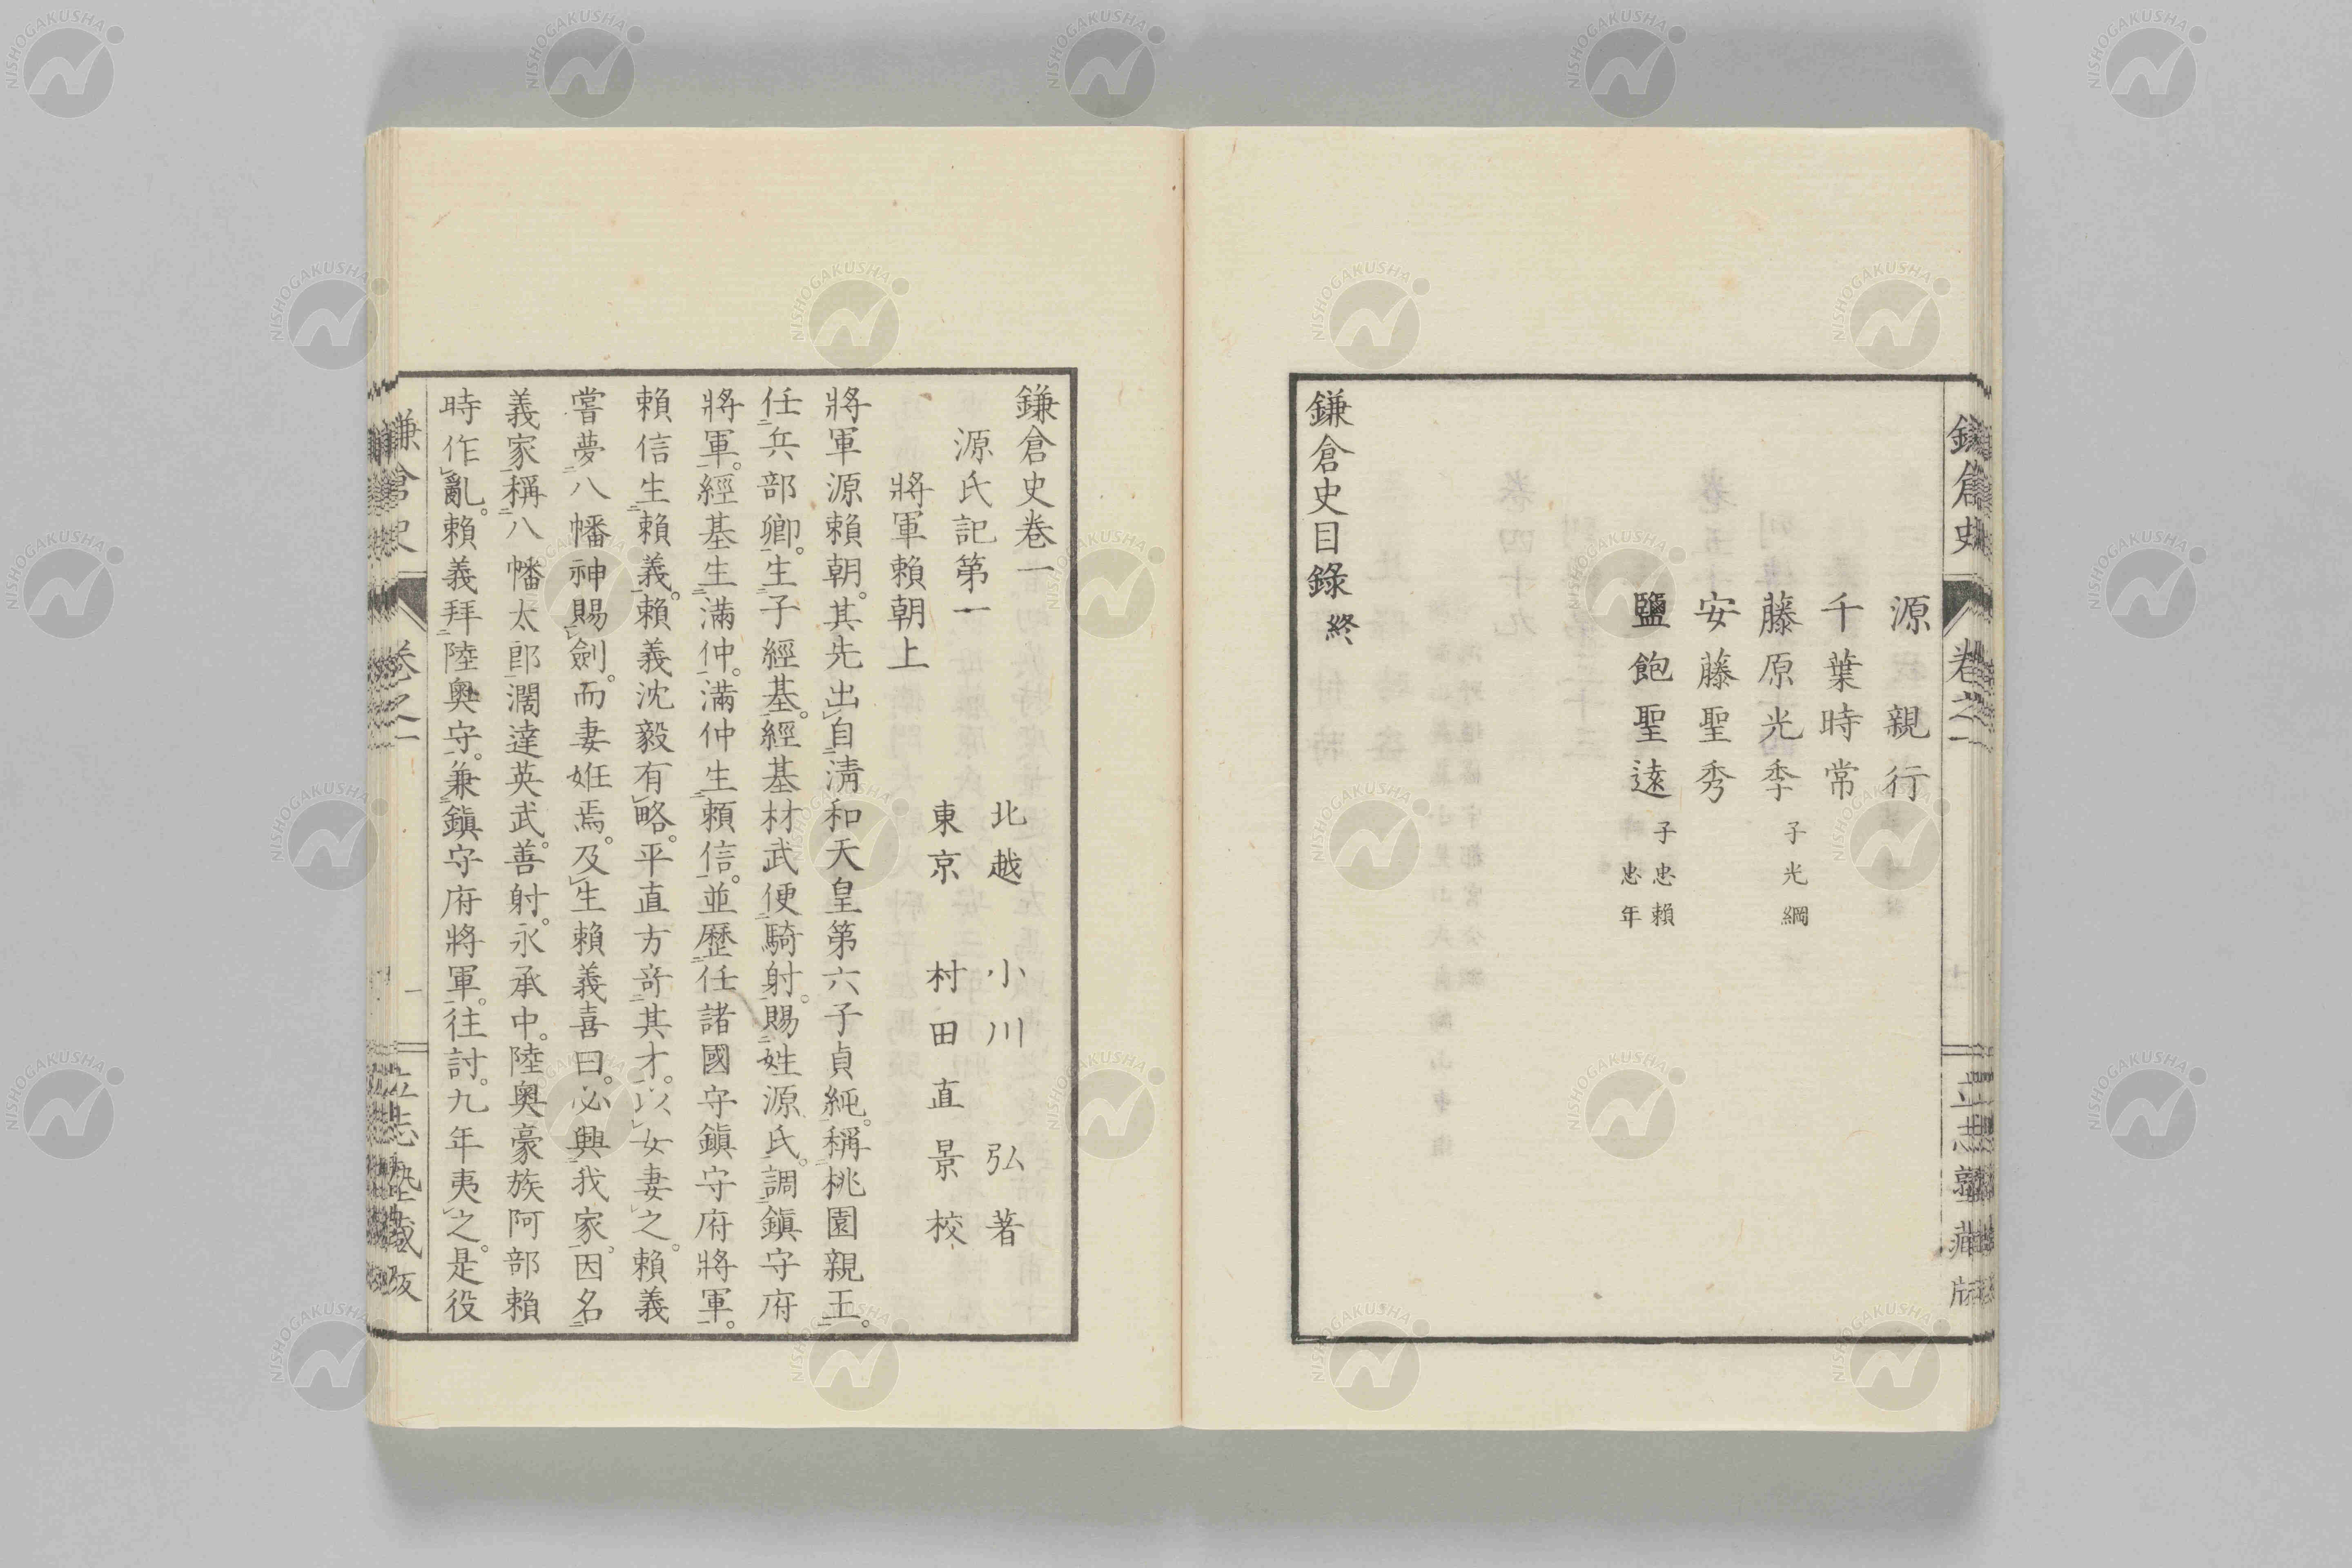 鎌倉史
卷之一
立志塾藏版
源親行
千葉時常
藤原光季 子光綱
安藤聖秀
鹽飽聖遠 子忠賴 忠年
鎌倉史目錄 終
鎌倉史卷一
源氏記第一
北越 小川 弘 著
東京 村田直景 校
將軍賴朝上
將軍源賴朝。其先出自淸和天皇第六子貞純。稱桃園親王。
任兵部卿。生子經基。經基材武便騎射。賜姓源氏。調鎭守府
將軍。經基生滿仲。滿仲生賴信。並歷任諸國守鎭守府將軍。
賴信生賴義。賴義沈毅有略。平直方奇其才。以女妻之。賴義
嘗夢八幡神賜劍。而妻姙焉。及生賴義喜曰。必興我家。因名
義家。稱八幡太郎。濶達英武。善射。永承中。陸奧豪族阿部賴
時作亂。賴義拜陸奧守。兼鎭守府將軍。往討。九年夷之。是役
鎌倉史
卷之一
一
立志塾藏版
NISHOGAKUSHA